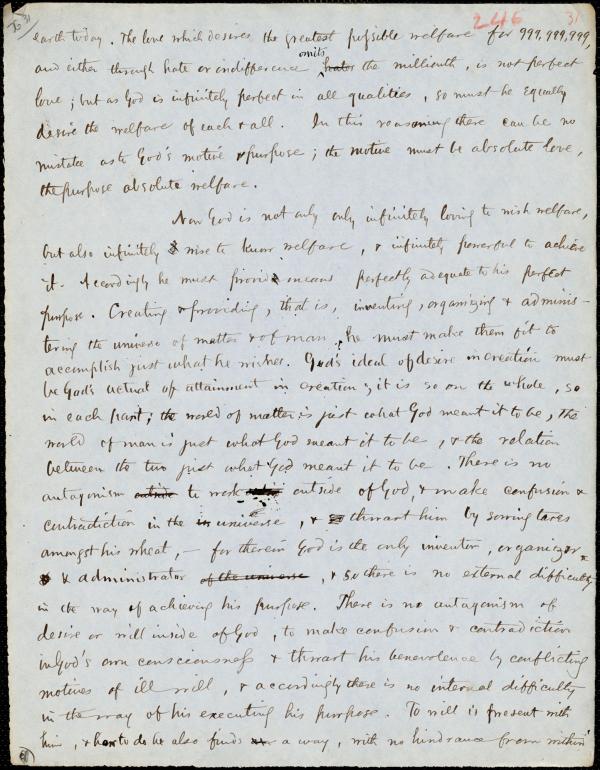 To 31
246 31
earth today. The love which desires the greatest possible welfare for 999,999,999,
omits
and either through hate or indifference hates the millionth, is not perfect
love; but as God is infinitely perfect in all qualities, so must he equally
desire the welfare of each & all. In this reasoning there can be no
mistake as to God's motive & purpose; the motive must be absolute love,
the purpose absolute welfare.
Now God is not only only infinitely loving to wish welfare,
but also infinitely wise to know welfare, & infinitely powerful to achieve
it. Accordingly he must provide means perfectly adequate to his perfect
purpose. Creating & providing, that is, inventing, organizing & adminis-
tering the universe of matter & of man, he must make them fit to
accomplish just what he wishes. God's ideal of desire in creation must
be God's actual of attainment in creation; it is so on the whole, so
in each part; the world of matter is just what God meant it to be, the
world of man is just what God meant it to be, & the relation
between the two just what God meant it to be. There is no
antagonism outside to work outside of God, & make confusion &
contradiction in the in universe, & thwart him by sowing tares
amongst his wheat, – for therein God is the only inventor, organizer,
& administrator of the universe, & so there is no external difficulty
in the way of achieving his purpose. There is no antagonism of
desire or will inside of God, to make confusion & contradiction
in God's own consciousness & thwart his benevolence by conflicting
motives of ill will, & accordingly there is no internal difficulty
in the way of his executing his purpose. To will is present with
him, & how to do he also finds a way, with no hindrance from within